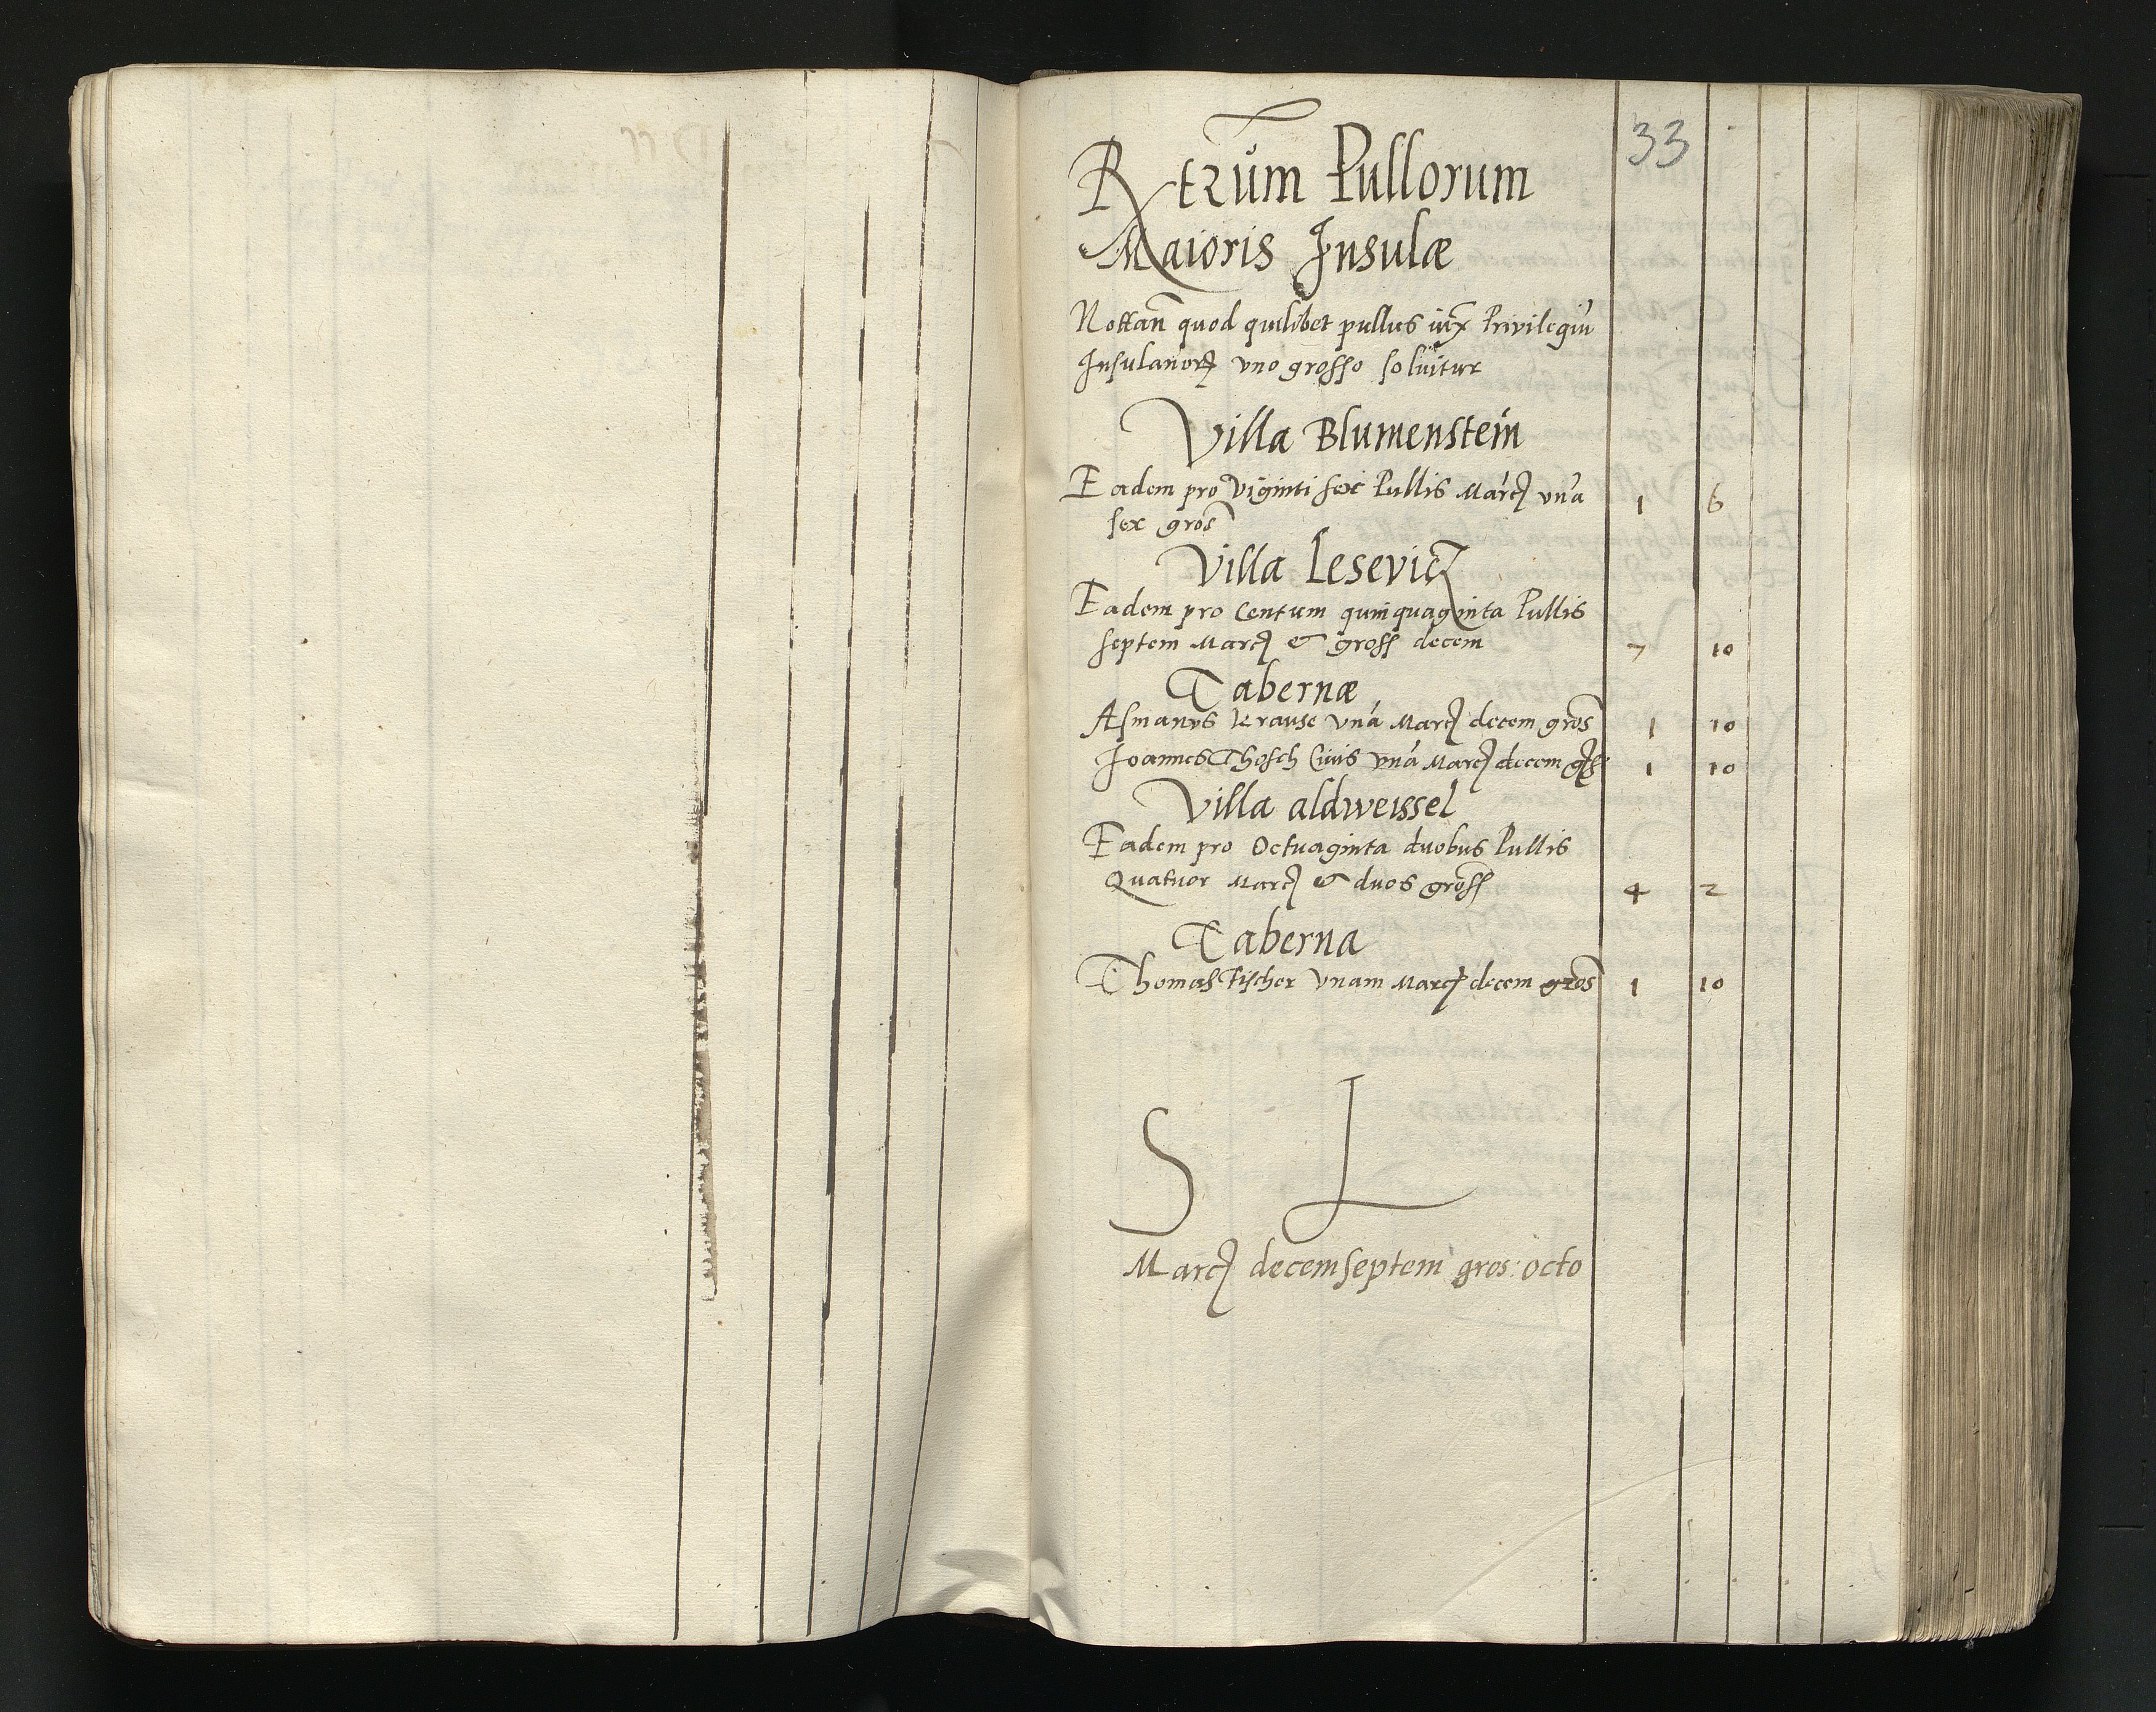 33
Rxtrum Pullorum
Maioris Insulæ
Nottan̄ quod quilibet pullus iux Privilegiũ
Insulanorꝝ vno grosso soluitur
Villa Blumenstein
Eadem pro Viginti sex Pullis Marcꝭ vná 1 6
sex gros̄
Villa Lesevicz
Eadem pro Centum quinquaginta Pullis
septem Marcꝭ & gross decem 7 10
Tabernæ
Asmanvs Krause vná Marcꝭ decem gros̄ 1 10
Joannes Thosch Civis vná Marcꝭ decem gs̄ 1 10
Villa aldweissel
Eadem pro Octvaginta dvobus Pullis
Qvatvor Marcꝭ & dvos gross 4 2
Taberna
Thomas Fischer Vnam Marcꝭ decem gros̄ 1 10
S L
Marcꝭ decemseptem gros: octo